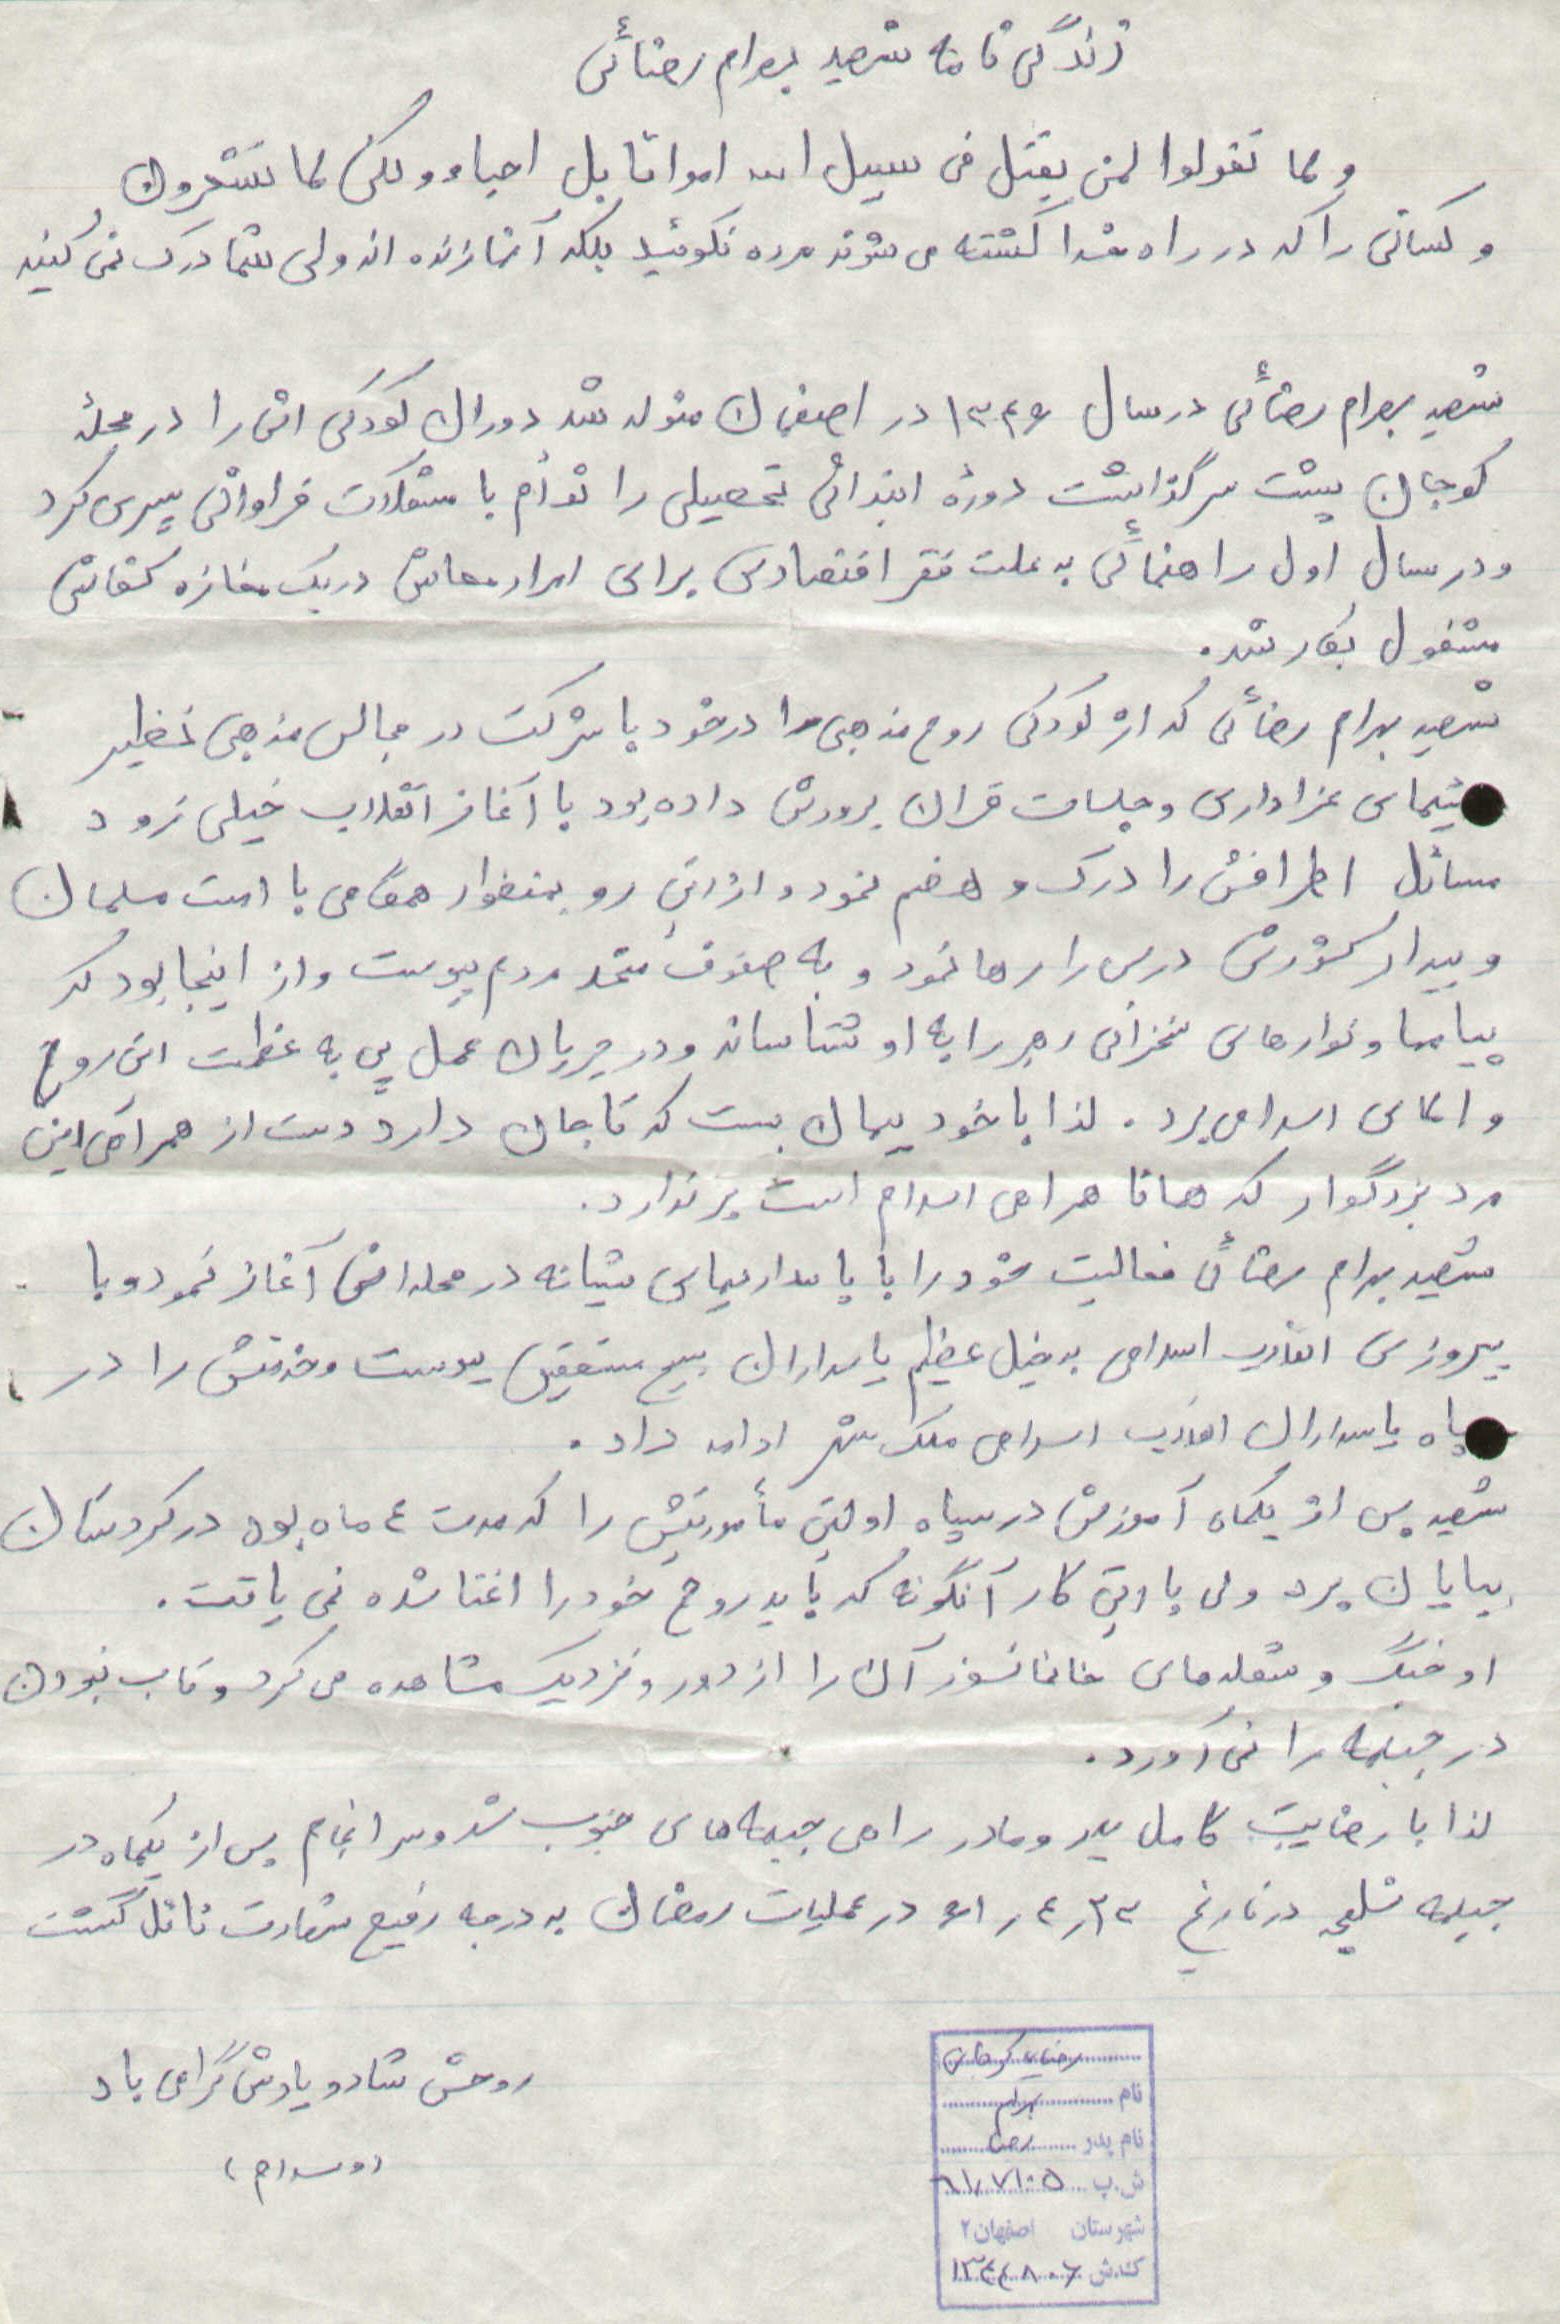 زندگی نامه شهید بهرام رضائی
و لا تقولوا لمن یقتل فی سبیل الله امواتا بل احیاء و لکن لا تشعرون
و کسانی را که در راه خدا کشته می شوند مرده نگوئید بلکه آنها زنده اند ولی شما درک نمی کنید
شهید بهرام رضائی در سال ۱۳۴۶ در اصفهان متولد شد دوران کودکی اش را در محلهٔ
کوجان پشت سر گذاشت دورهٔ ابتدائی تحصیلی را توأم با مشکلات فراوانی سپری کرد
و در سال اول راهنمائی به علت فقر اقتصادی برای امرار معاش در یک مغازه کفاشی
مشغول بکار شد.
شهید بهرام رضائی که از کودکی روح مذهبی را در خود با شرکت در مجالس مذهبی نظیر
عزاداری و جلسات قران پرورش داده بود با آغاز انقلاب خیلی زود
مسائل اطرافش را درک و هضم نمود و از این رو بمنظور همگامی با امت مسلمان
و بیدار کشورش درس را رها نمود و به صفوف متحد مردم پیوست و از اینجا بود که
پیامها و نوارهای سخنرانی رهبر را به او شناساند و در جریان عمل پی به عظمت این روح
والای اسلامی برد. لذا با خود پیمان بست که تا جان دارد دست از همراهی این
مرد بزرگوار که همانا همراهی اسلام است بر ندارد.
شهید بهرام رضائی فعالیت خود را با پاسداریهای شبانه در محله اش آغاز نمود و با
پیروزی انقلاب اسلامی به خیل عظیم پاسداران بسیج مستضعفین پیوست و خدمتش را در
سپاه پاسداران انقلاب اسلامی ملک شهر ادامه داد.
شهید پس از یکماه آموزش در سپاه اولین مأموریتش را که مدت ٤ ماه بود در کردستان
بپایان برد ولی با این کار آنگونه که باید روح خود را اغنا شده نمی یافت.
او جنگ و شعله های خانمانسوز آن را از دور و نزدیک مشاهده می کرد و تاب نبودن
در جبهه را نمی آورد.
لذا با رضایت کامل پدر و مادر راهی جبهه های جنوب شد و سرانجام پس از یکماه در
جبهه شلمچه در تاریخ ۲۳ر٤ر۶۱ در عملیات رمضان به درجه رفیع شهادت نائل گشت
روحش شاد و یادش گرامی باد
(والسلام)
رضایی کوجانی
نام بهرام
نام پدر رضا
ش.پ ۶۱٫۷۱۰۵
شهرستان اصفهان ۲
کد.ش ۱۳٤٤۸۰۶